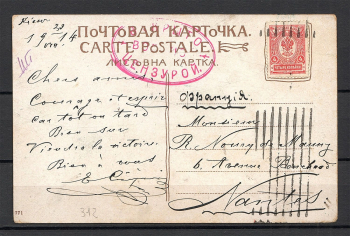 Kiew
1914
ПОЧТОВАЯ КАРТОЧКА.
CARTE POSTALE.
ЛИСТОВНА КАРТКА.
ЦЕНЗУРОЙ
Chers amis,
Courage et espoir
Car tôt ou tard
Bien sur
Viendra la victoire.
Bien à vous
Франція
Monsieur
R. Noury de Mauny
6, Avenue
Nantes
312